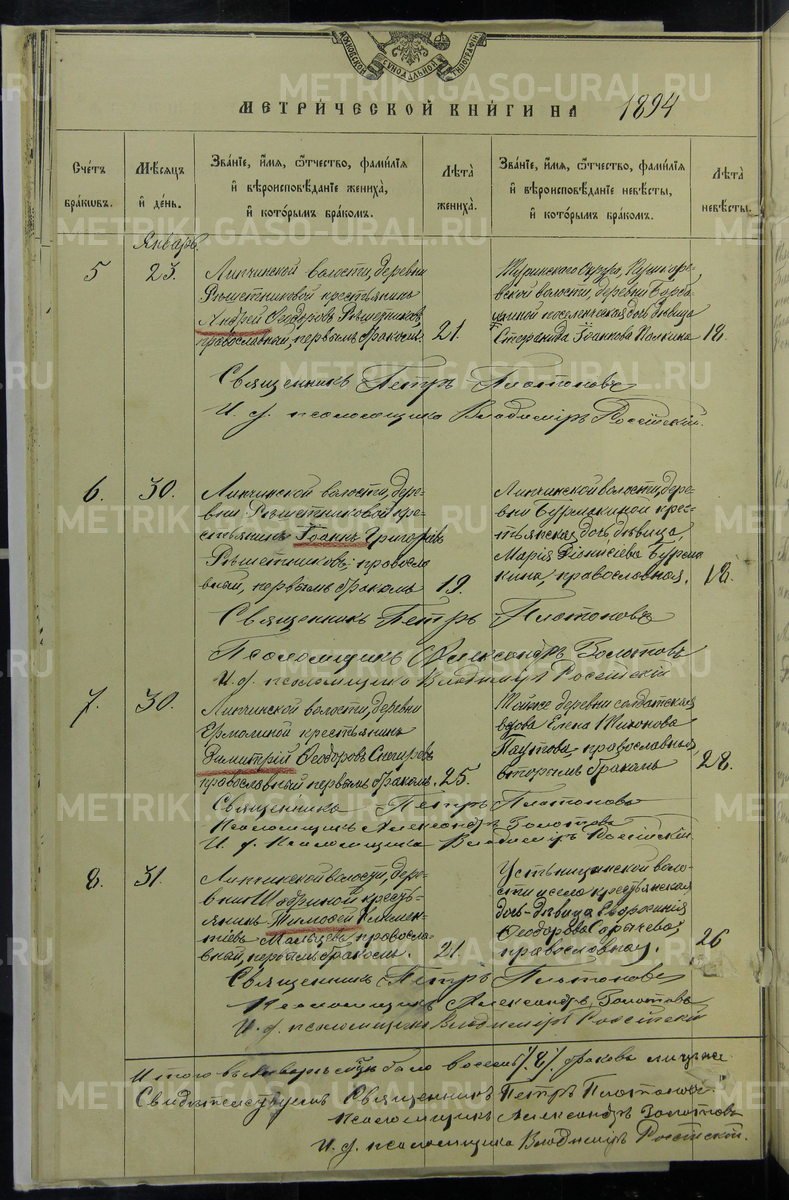 МЕТРИ́ЧЕСКОЙ КНИ́ГИ НА 1894
Сче́тъ бра́кωвъ.
Мѣ́сѧцъ и҆ де́нь.
Зва́нїе, и҆́мѧ, ѻ҆́тчество, фамѝлїѧ и҆ вѣроисповѣ́данїе жениха̀, и҆ кото́рымъ бра́комъ.
Лѣ́та жениха̀.
Зва́нїе, и҆́мѧ, ѻ҆́тчество, фамѝлїѧ и҆ вѣроисповѣ́данїе невѣ́сты, и҆ кото́рымъ бра́комъ.
Лѣ́та невѣ́сты.
Январь.
5
23.
Липчинской волости, деревни
Рѣшетниковой крестьянинъ
Андрей Ѳеодоровъ Рѣшетниковъ,
православный, первымъ бракомъ.
21.
Туринскаго округа,
волости, деревни
дочь дѣвица
18.
Священникъ Петръ Платоновъ
И. д. псаломщика Владиміръ Россійскій.
6.
30.
Липчинской волости, дере-
вни Рѣшетниковой кре-
стьянинъ Іоаннъ Григорьевъ
Рѣшетниковъ, правосла-
вный, первымъ бракомъ
19.
Липчинской волости, дере-
вни Бурмакиной крес-
тьянская дочь дѣвица,
Марія Діонисіева Бурма
кина, православная.
18.
Священникъ Петръ Платоновъ
Псаломщикъ Александръ Золотовъ
И. д. псаломщика Владиміръ Россійскій
7.
30.
Липчинской волости, деревни
Ермолиной крестьянинъ
Димитрій Ѳеодоровъ Снегиревъ
православный первымъ бракомъ.
25.
Тойже деревни солдатская
вдова Елена Тихонова
Паутова, православная,
вторымъ бракомъ
28.
Священникъ Петръ Платоновъ
Псаломщикъ Александръ Золотовъ
И. д. Псаломщика Владиміръ Россійскій
8.
31.
Липчинской волости, дере-
вни Шабриной кресть-
янинъ Тимоѳей Климен-
тіевъ Мальцевъ правосла-
вный, первымъ бракомъ.
21.
Устьницинской воло-
сти и села крестьянская
дочь-дѣвица Евфросинія
Ѳеодорова Сорычева,
православная.
26
Священникъ Петръ Платоновъ
Псаломщикъ Александръ Золотовъ
И. д. псаломщика Владиміръ Россійскій
Итого въ Январѣ было восемь /8/ браковъ
Свидѣтельствуемъ Священникъ Петръ Платоновъ
Псаломщикъ Александръ Золотовъ
И. д. псаломщика Владиміръ Россійскій.
METRIKI.GASO-URAL.RU